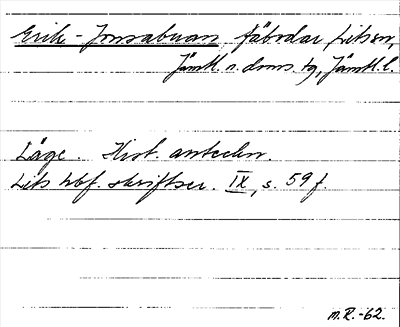 Erik-Jonsabuan fäbodar Lits sn,
Jämtl. n. doms. tg, Jämtl. l.
Läge. Hist. anteckn.
Lits hbf. skriftser. IX, s. 59 f.
M.R.-62.